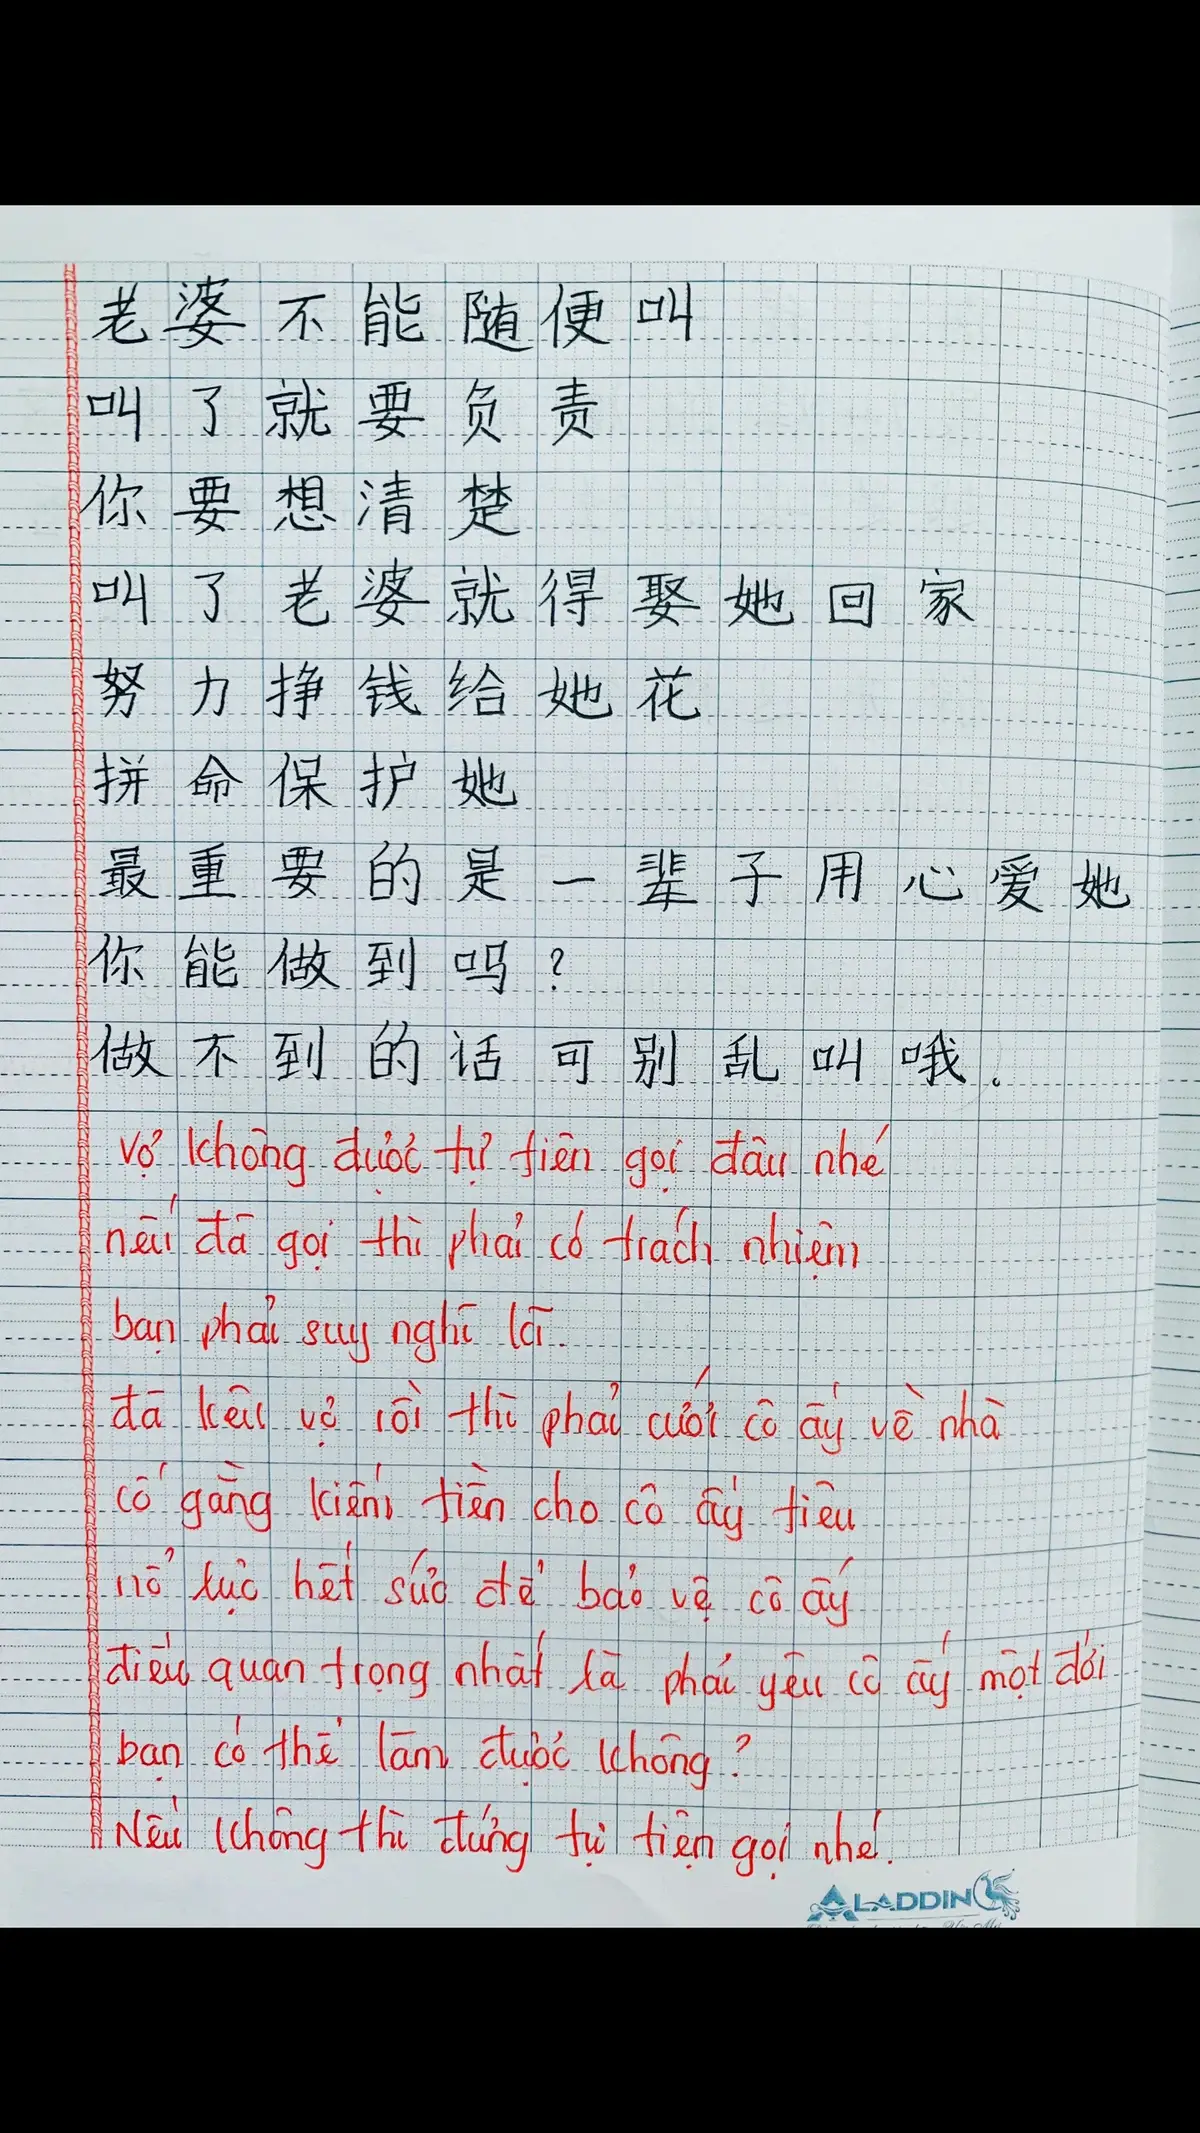 老婆不能随便叫
叫了就要负责
你要想清楚
叫了老婆就得娶她回家
努力挣钱给她花
拼命保护她
最重要的是一辈子用心爱她
你能做到吗?
做不到的话可别乱叫哦.
vợ không được tự tiên gọi đâu nhé
nếu đã gọi thì phải có trách nhiệm
bạn phải suy nghĩ lã.
đã kêu vợ rồi thì phải cưới cô ấy về nhà
cố gằng kiếm tiền cho cô ấy tiêu
nổ lực hết sức để bảo vệ cô ấy
điều quan trọng nhất là phải yêu cô ấy một đời
bạn có thể làm được không?
Nếu không thì đứng tự tiện gọi nhé.
ALADDIN